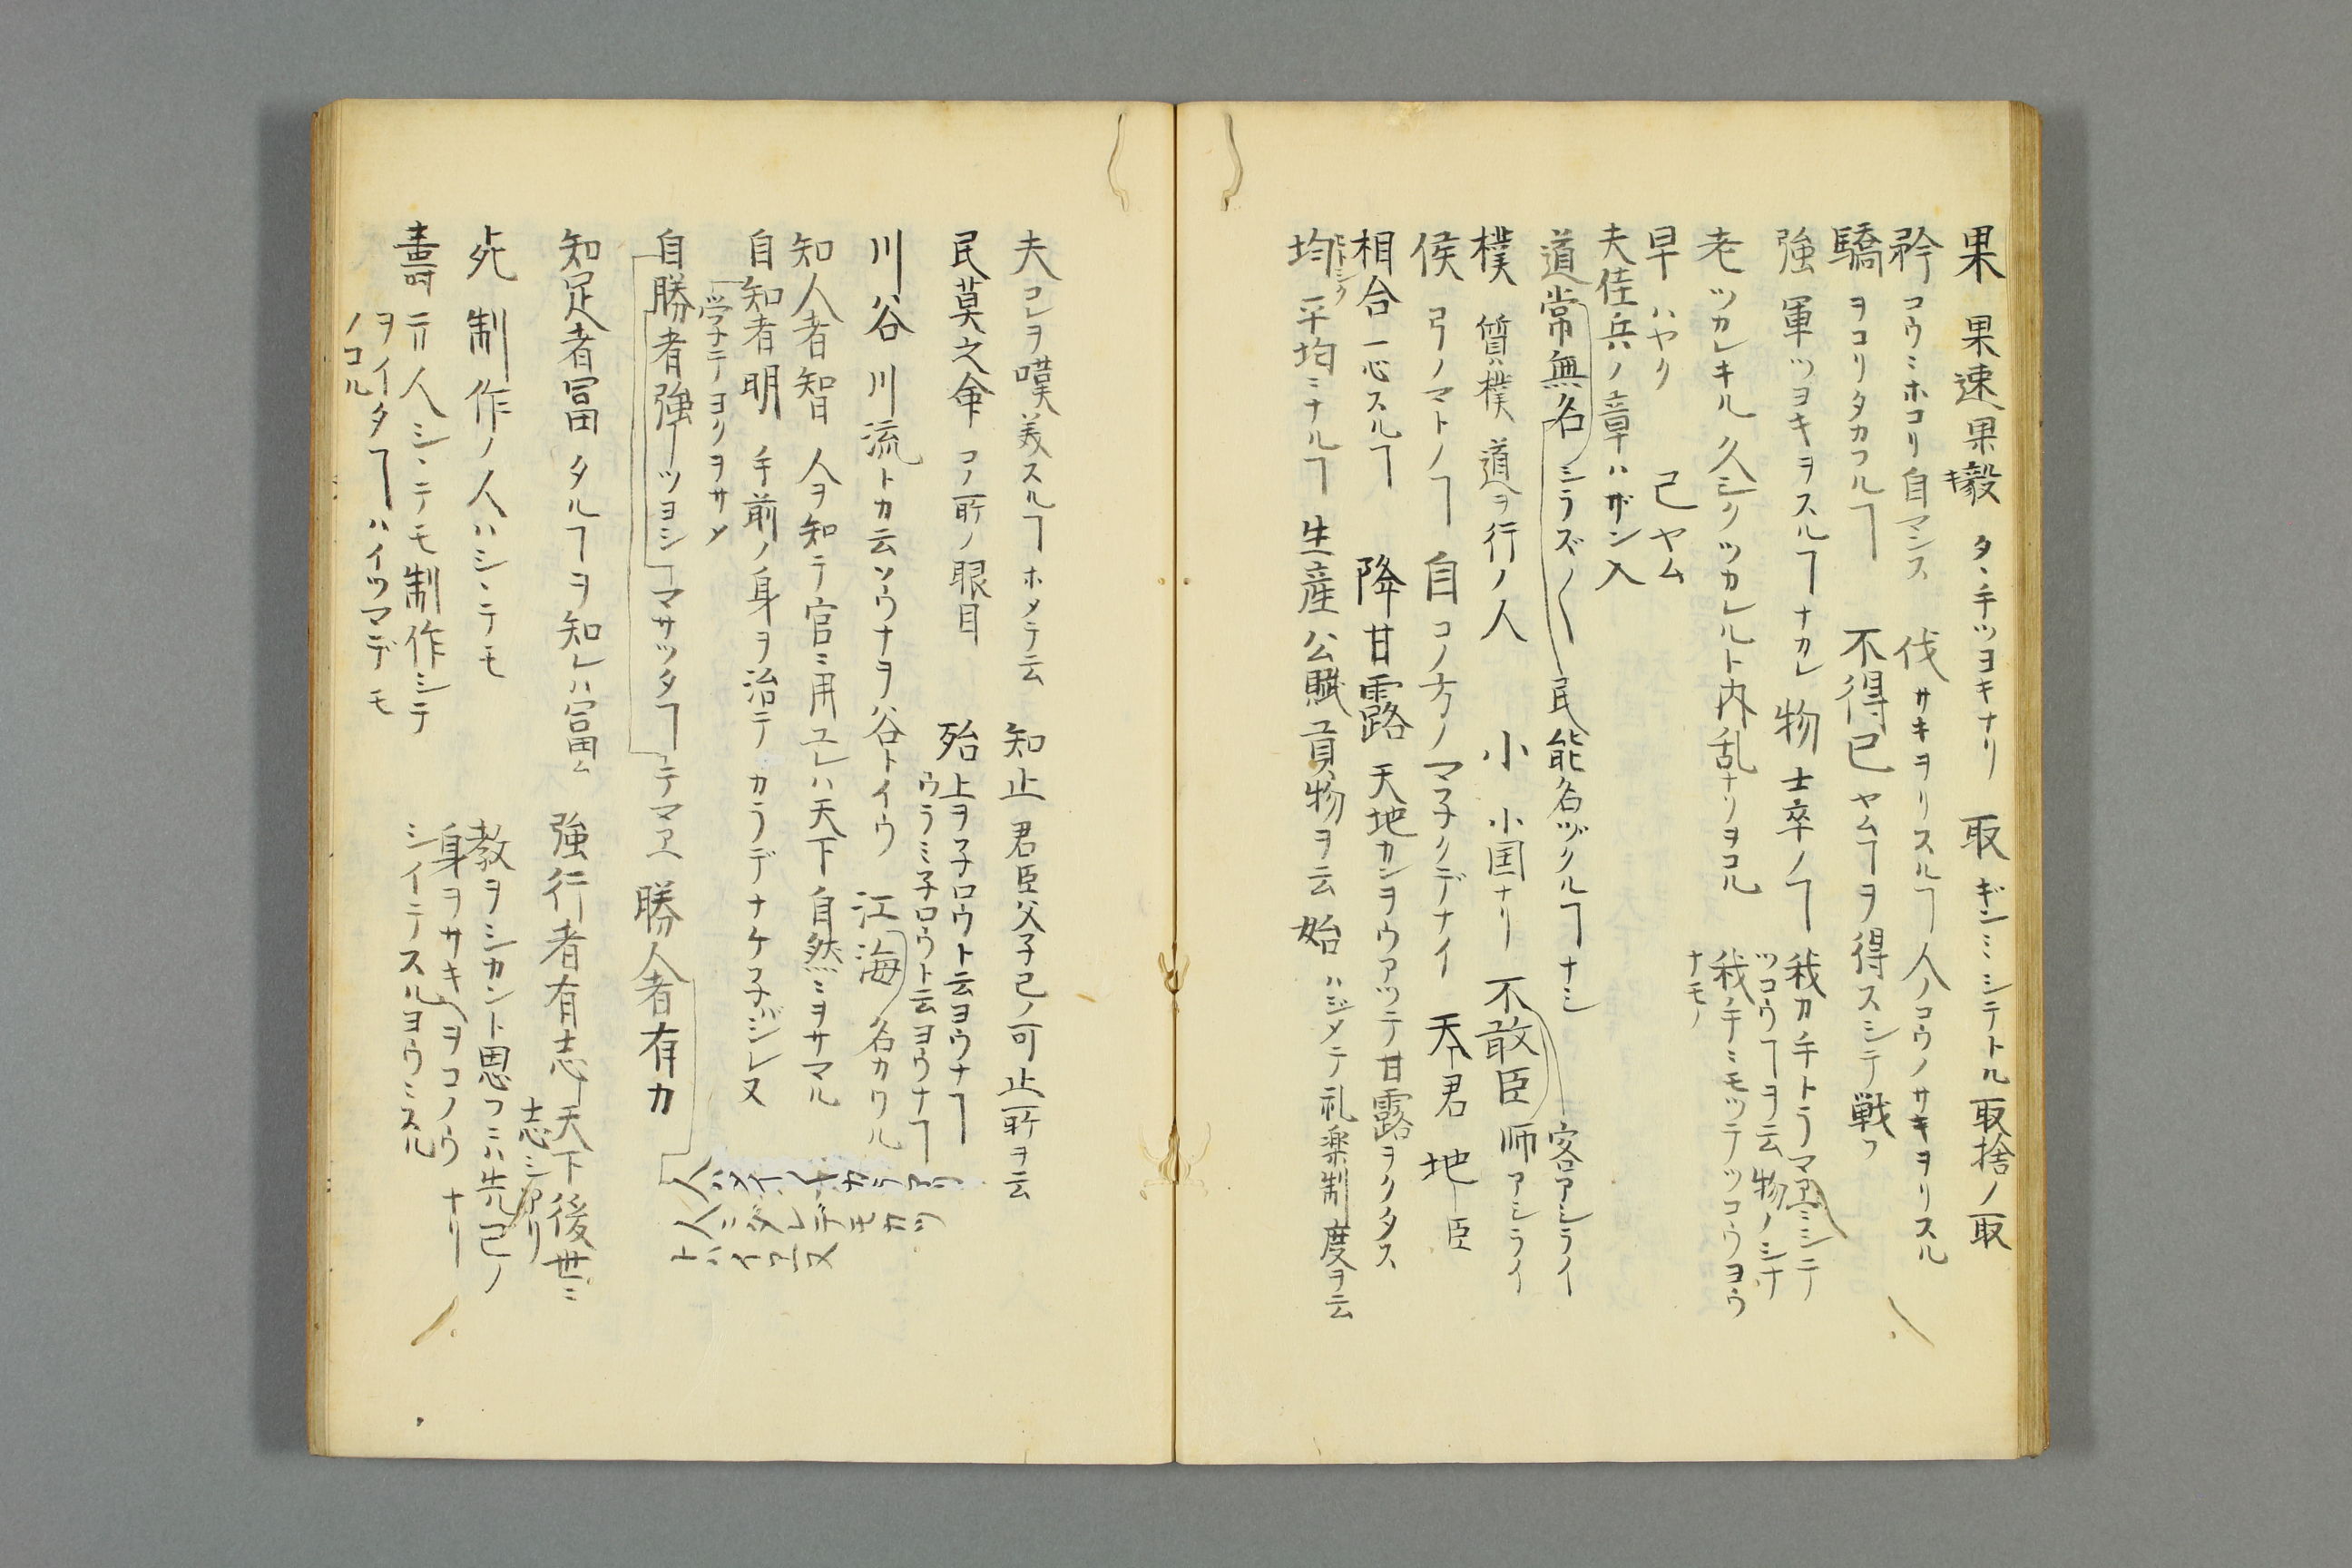 果 果速果毅キ タヽ手ツヨキナリ 取 ギンミシテトル取捨ノ取
矜 コウミホコリ自マンス 伐 サキヲリスルヿ 人ノコウノサキヲリスル
驕 ヲコリタカフルヿ 不得已 ヤムヿヲ得スシテ戦フ
強 軍ツヨキヲスルヿナカレ 物 士卒ノヿ 我カ手トラマヱニシテ
ツコウヿヲ云物ノシナ
老 ツカレキル 久シクツカレルト内乱ナリヲコル 我手ミモツテツコウヨウ
ナモノ
早 ハヤク 已 ヤム
夫佳兵ノ章ハザン入
道常無名 シラズ 民能名ヅクルヿナシ 客アシライ
樸 質樸 道ヲ行ノ人 小 小国ナリ 不敢臣 師アシライ
侯 弓ノマトノヿ 自 コノ方ノマ子クデナイ 天 君 地 臣
相合 一心スルヿ 降甘露 天地カンヲウアツテ甘露ヲクタス
均ヒトシク 平均ミナルヿ 生産公賦貢物ヲ云 始 ハジメテ礼楽制度ヲ云
夫 コレヲ嘆美スルヿ ホメテ云 知止 君臣父子己ノ可止所ヲ云
民莫之命 コノ所ノ眼目 殆 上ヲ子ロウト云ヨウナヿ
ウラミ子ロウト云ヨウナヿ
川谷 川流トカ云ソウナヲ谷トイウ 江海 名カワル
知人者智 人ヲ知テ官ミ用ユレハ天下自然ミヲサマル
自知者明 手前ノ身ヲ治テ カラデナケ子ジレヌ
学テヨリヲサメ
自勝者強 ツヨシ マサツタヿ テマヱ 勝人者有力
人ハメイレヤカラアリ
人ミダレデモカツ
トハイワヱヌ
知足者富 タルヿヲ知レハ富ム 強行者有志 天下後世ミ
志シアリ
死 制作ノ人ハシヽテモ 教ヲシカント思フミハ先己ノ
身ヲサキヘヲコノウナリ
壽 テ人シヽテモ制作シテ シイテスルヨウミスル
ヲイタヿハイツマデモ
ノコル